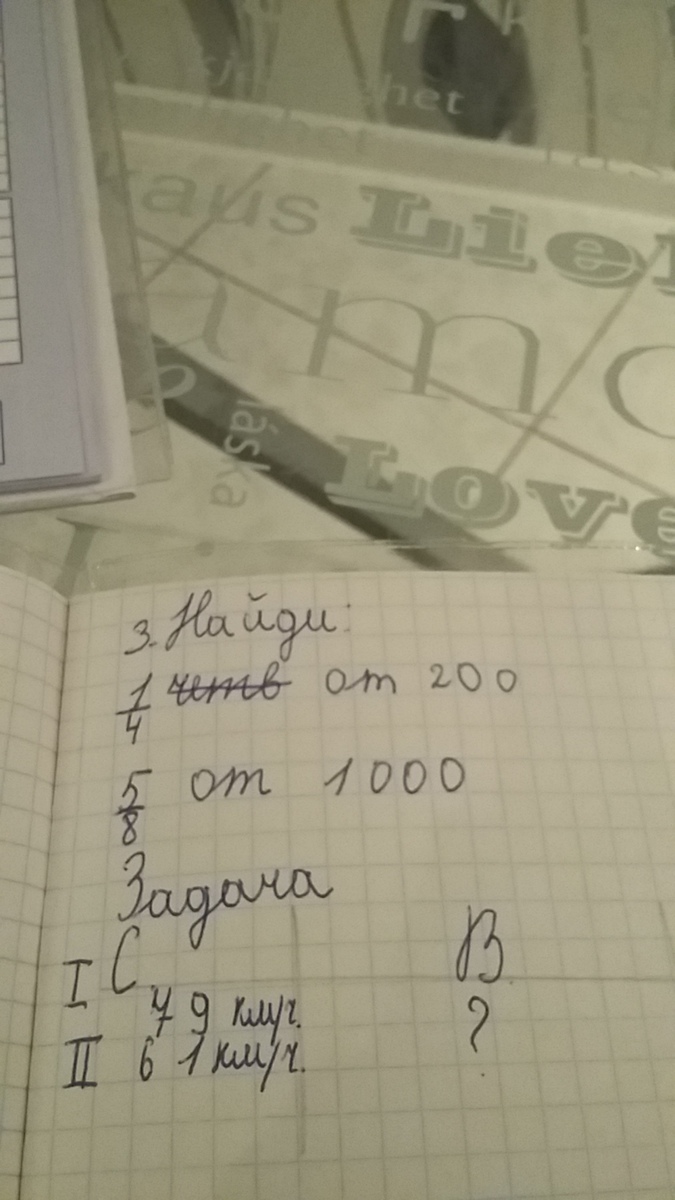 het
kaus Lie
a m
láska
Love
3. Найди:
1/4 четв от 200
5/8 от 1000
Задача
I С 79 км/ч. В
II 61 км/ч. ?